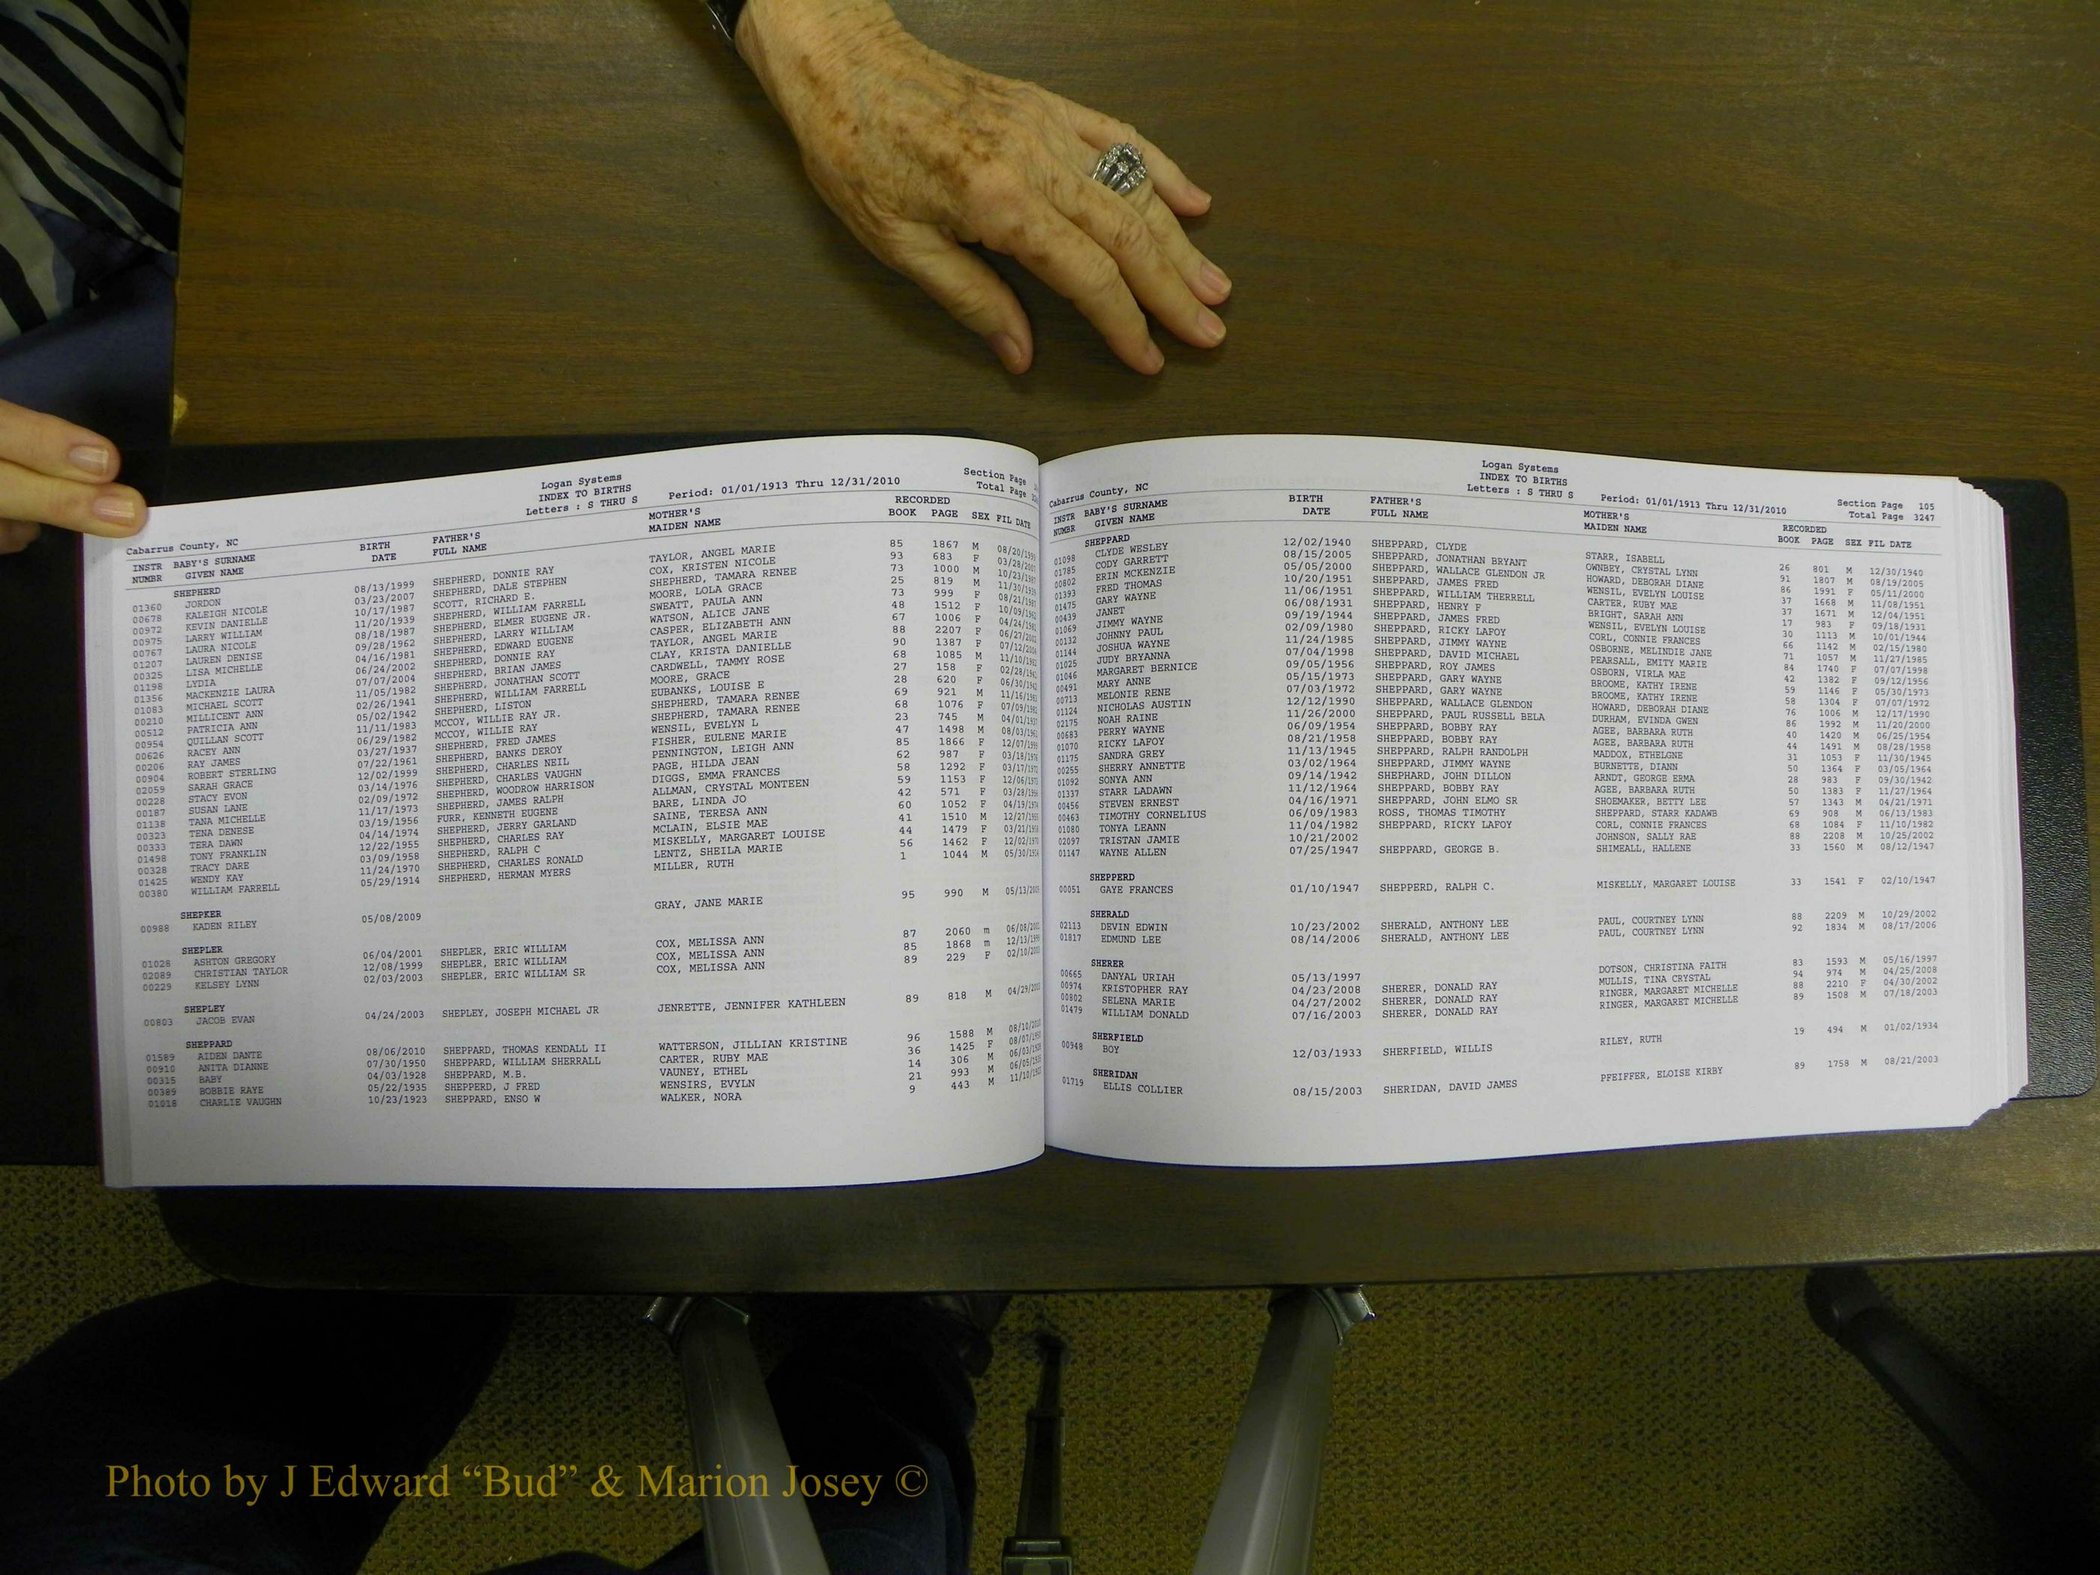 Logan Systems
INDEX TO BIRTHS
Cabarrus County, NC Letters : S THRU S Period: 01/01/1913 Thru 12/31/2010 Section Page
Total Page
INSTR BABY'S SURNAME BIRTH FATHER'S MOTHER'S RECORDED
NUMBR GIVEN NAME DATE FULL NAME MAIDEN NAME BOOK PAGE SEX FIL DATE
SHEPHERD
01360 JORDON 08/13/1999 SHEPHERD, DONNIE RAY TAYLOR, ANGEL MARIE 85 1867 M
00678 KALEIGH NICOLE 03/23/2007 SHEPHERD, DALE STEPHEN COX, KRISTEN NICOLE 93 683 F
00972 KEVIN DANIELLE 10/17/1987 SCOTT, RICHARD E. SHEPHERD, TAMARA RENEE 73 1000 M
00975 LARRY WILLIAM 11/20/1939 SHEPHERD, WILLIAM FARRELL MOORE, LOLA GRACE 25 819 M
00767 LAURA NICOLE 08/18/1987 SHEPHERD, ELMER EUGENE JR. SWEATT, PAULA ANN 73 999 F
01207 LAUREN DENISE 09/28/1962 SHEPHERD, LARRY WILLIAM WATSON, ALICE JANE 48 1512 F
00325 LISA MICHELLE 04/16/1981 SHEPHERD, EDWARD EUGENE CASPER, ELIZABETH ANN 67 1006 F
01198 LYDIA 06/24/2002 SHEPHERD, DONNIE RAY TAYLOR, ANGEL MARIE 88 2207 F
01356 MACKENZIE LAURA 07/07/2004 SHEPHERD, BRIAN JAMES CLAY, KRISTA DANIELLE 90 1387 F
01083 MICHAEL SCOTT 11/05/1982 SHEPHERD, JONATHAN SCOTT CARDWELL, TAMMY ROSE 68 1085 M
00210 MILLICENT ANN 02/26/1941 SHEPHERD, WILLIAM FARRELL MOORE, GRACE 27 158 F
00512 PATRICIA ANN 05/02/1942 SHEPHERD, LISTON EUBANKS, LOUISE E 28 620 F
00954 QUILLAN SCOTT 11/11/1983 MCCOY, WILLIE RAY JR. SHEPHERD, TAMARA RENEE 69 921 M
00626 RACEY ANN 06/29/1982 MCCOY, WILLIE RAY SHEPHERD, TAMARA RENEE 68 1076 F
00206 RAY JAMES 03/27/1937 SHEPHERD, FRED JAMES WENSIL, EVELYN L 23 745 M
00904 ROBERT STERLING 07/22/1961 SHEPHERD, BANKS DEROY FISHER, EULENE MARIE 47 1498 M
02059 SARAH GRACE 12/02/1999 SHEPHERD, CHARLES NEIL PENNINGTON, LEIGH ANN 85 1866 F
00228 STACY EVON 03/14/1976 SHEPHERD, CHARLES VAUGHN PAGE, HILDA JEAN 62 987 F
00187 SUSAN LANE 02/09/1972 SHEPHERD, WOODROW HARRISON DIGGS, EMMA FRANCES 58 1292 F
01138 TANA MICHELLE 11/17/1973 SHEPHERD, JAMES RALPH ALLMAN, CRYSTAL MONTEEN 59 1153 F
00323 TENA DENESE 03/19/1956 FURR, KENNETH EUGENE BARE, LINDA JO 42 571 F
00333 TERA DAWN 04/14/1974 SHEPHERD, JERRY GARLAND SAINE, TERESA ANN 60 1052 F
01498 TONY FRANKLIN 12/22/1955 SHEPHERD, CHARLES RAY MCLAIN, ELSIE MAE 41 1510 M
00328 TRACY DARE 03/09/1958 SHEPHERD, RALPH C MISKELLY, MARGARET LOUISE 44 1479 F
01425 WENDY KAY 11/24/1970 SHEPHERD, CHARLES RONALD LENTZ, SHEILA MARIE 56 1462 F
00380 WILLIAM FARRELL 05/29/1914 SHEPHERD, HERMAN MYERS MILLER, RUTH 1 1044 M
SHEPKER
00988 KADEN RILEY 05/08/2009 GRAY, JANE MARIE 95 990 M
SHEPLER
01028 ASHTON GREGORY 06/04/2001 SHEPLER, ERIC WILLIAM COX, MELISSA ANN 87 2060 m
02089 CHRISTIAN TAYLOR 12/08/1999 SHEPLER, ERIC WILLIAM COX, MELISSA ANN 85 1868 m
00229 KELSEY LYNN 02/03/2003 SHEPLER, ERIC WILLIAM SR COX, MELISSA ANN 89 229 F
SHEPLEY
00803 JACOB EVAN 04/24/2003 SHEPLEY, JOSEPH MICHAEL JR JENRETTE, JENNIFER KATHLEEN 89 818 M
SHEPPARD
01589 AIDEN DANTE 08/06/2010 SHEPPARD, THOMAS KENDALL II WATTERSON, JILLIAN KRISTINE 96 1588 M
00910 ANITA DIANNE 07/30/1950 SHEPPARD, WILLIAM SHERRALL CARTER, RUBY MAE 36 1425 F
00315 BABY 04/03/1928 SHEPPARD, M.B. VAUNEY, ETHEL 14 306 M
00389 BOBBIE RAYE 05/22/1935 SHEPPERD, J FRED WENSIRS, EVYLN 21 993 M
01018 CHARLIE VAUGHN 10/23/1923 SHEPPARD, ENSO W WALKER, NORA 9 443 M
Logan Systems
INDEX TO BIRTHS
Cabarrus County, NC Letters : S THRU S Period: 01/01/1913 Thru 12/31/2010 Section Page 105
Total Page 3247
INSTR BABY'S SURNAME BIRTH FATHER'S MOTHER'S RECORDED
NUMBR GIVEN NAME DATE FULL NAME MAIDEN NAME BOOK PAGE SEX FIL DATE
SHEPPARD
01098 CLYDE WESLEY 12/02/1940 SHEPPARD, CLYDE STARR, ISABELL 26 801 M 12/30/1940
01785 CODY GARRETT 08/15/2005 SHEPPARD, JONATHAN BRYANT OWNBEY, CRYSTAL LYNN 91 1807 M 08/19/2005
00802 ERIN MCKENZIE 05/05/2000 SHEPPARD, WALLACE GLENDON JR HOWARD, DEBORAH DIANE 86 1991 F 05/11/2000
01393 FRED THOMAS 10/20/1951 SHEPPARD, JAMES FRED WENSIL, EVELYN LOUISE 37 1668 M 11/08/1951
01475 GARY WAYNE 11/06/1951 SHEPPARD, WILLIAM THERRELL CARTER, RUBY MAE 37 1671 M 12/04/1951
00439 JANET 06/08/1931 SHEPPARD, HENRY F BRIGHT, SARAH ANN 17 983 F 09/18/1931
01069 JIMMY WAYNE 09/19/1944 SHEPPARD, JAMES FRED WENSIL, EVELYN LOUISE 30 1113 M 10/01/1944
00132 JOHNNY PAUL 02/09/1980 SHEPPARD, RICKY LAFOY CORL, CONNIE FRANCES 66 1142 M 02/15/1980
01144 JOSHUA WAYNE 11/24/1985 SHEPPARD, JIMMY WAYNE OSBORNE, MELINDIE JANE 71 1057 M 11/27/1985
01025 JUDY BRYANNA 07/04/1998 SHEPPARD, DAVID MICHAEL PEARSALL, EMITY MARIE 84 1740 F 07/07/1998
01046 MARGARET BERNICE 09/05/1956 SHEPPARD, ROY JAMES OSBORN, VIRLA MAE 42 1382 F 09/12/1956
00491 MARY ANNE 05/15/1973 SHEPPARD, GARY WAYNE BROOME, KATHY IRENE 59 1146 F 05/30/1973
00713 MELONIE RENE 07/03/1972 SHEPPARD, GARY WAYNE BROOME, KATHY IRENE 58 1304 F 07/07/1972
01124 NICHOLAS AUSTIN 12/12/1990 SHEPPARD, WALLACE GLENDON HOWARD, DEBORAH DIANE 76 1006 M 12/17/1990
02175 NOAH RAINE 11/26/2000 SHEPPARD, PAUL RUSSELL BELA DURHAM, EVINDA GWEN 86 1992 M 11/20/2000
00683 PERRY WAYNE 06/09/1954 SHEPPARD, BOBBY RAY AGEE, BARBARA RUTH 40 1420 M 06/25/1954
01070 RICKY LAFOY 08/21/1958 SHEPPARD, BOBBY RAY AGEE, BARBARA RUTH 44 1491 M 08/28/1958
01175 SANDRA GREY 11/13/1945 SHEPPARD, RALPH RANDOLPH MADDOX, ETHELGNE 31 1053 F 11/30/1945
00255 SHERRY ANNETTE 03/02/1964 SHEPPARD, JIMMY WAYNE BURNETTE, DIANN 50 1364 F 03/05/1964
01092 SONYA ANN 09/14/1942 SHEPHARD, JOHN DILLON ARNDT, GEORGE ERMA 28 983 F 09/30/1942
01337 STARR LADAWN 11/12/1964 SHEPPARD, BOBBY RAY AGEE, BARBARA RUTH 50 1383 F 11/27/1964
00456 STEVEN ERNEST 04/16/1971 SHEPPARD, JOHN ELMO SR SHOEMAKER, BETTY LEE 57 1343 M 04/21/1971
00463 TIMOTHY CORNELIUS 06/09/1983 ROSS, THOMAS TIMOTHY SHEPPARD, STARR KADAWB 69 908 M 06/13/1983
01080 TONYA LEANN 11/04/1982 SHEPPARD, RICKY LAFOY CORL, CONNIE FRANCES 68 1084 F 11/10/1982
02097 TRISTAN JAMIE 10/21/2002 JOHNSON, SALLY RAE 88 2208 M 10/25/2002
01147 WAYNE ALLEN 07/25/1947 SHEPPARD, GEORGE B. SHIMEALL, HALLENE 33 1560 M 08/12/1947
SHEPPERD
00051 GAYE FRANCES 01/10/1947 SHEPPERD, RALPH C. MISKELLY, MARGARET LOUISE 33 1541 F 02/10/1947
SHERALD
02113 DEVIN EDWIN 10/23/2002 SHERALD, ANTHONY LEE PAUL, COURTNEY LYNN 88 2209 M 10/29/2002
01817 EDMUND LEE 08/14/2006 SHERALD, ANTHONY LEE PAUL, COURTNEY LYNN 92 1834 M 08/17/2006
SHERER
00665 DANYAL URIAH 05/13/1997 DOTSON, CHRISTINA FAITH 83 1593 M 05/16/1997
00974 KRISTOPHER RAY 04/23/2008 SHERER, DONALD RAY MULLIS, TINA CRYSTAL 94 974 M 04/25/2008
00802 SELENA MARIE 04/27/2002 SHERER, DONALD RAY RINGER, MARGARET MICHELLE 88 2210 F 04/30/2002
01479 WILLIAM DONALD 07/16/2003 SHERER, DONALD RAY RINGER, MARGARET MICHELLE 89 1508 M 07/18/2003
SHERFIELD
00948 BOY 12/03/1933 SHERFIELD, WILLIS RILEY, RUTH 19 494 M 01/02/1934
SHERIDAN
01719 ELLIS COLLIER 08/15/2003 SHERIDAN, DAVID JAMES PFEIFFER, ELOISE KIRBY 89 1758 M 08/21/2003
Photo by J Edward “Bud” & Marion Josey ©